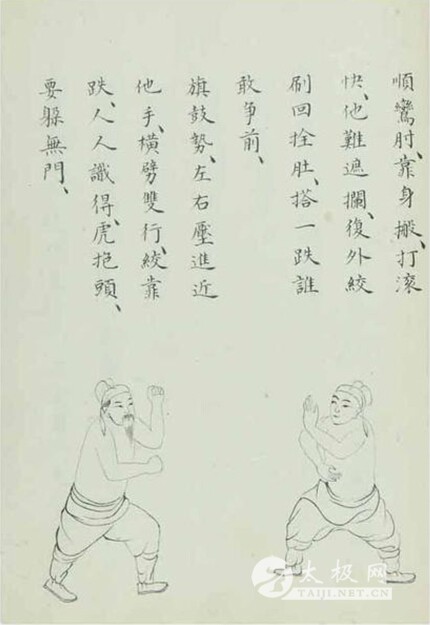 順鸞肘、靠身搬、打滚
快、他難遮攔、復外絞
刷回拴肚、搭一跌誰
敢争前、
旗鼓勢、左右壓進近
他手、橫劈雙行、絞靠
跌、人人識得、虎抱頭、
要躲無門、
太极网
TAIJI.NET.CN